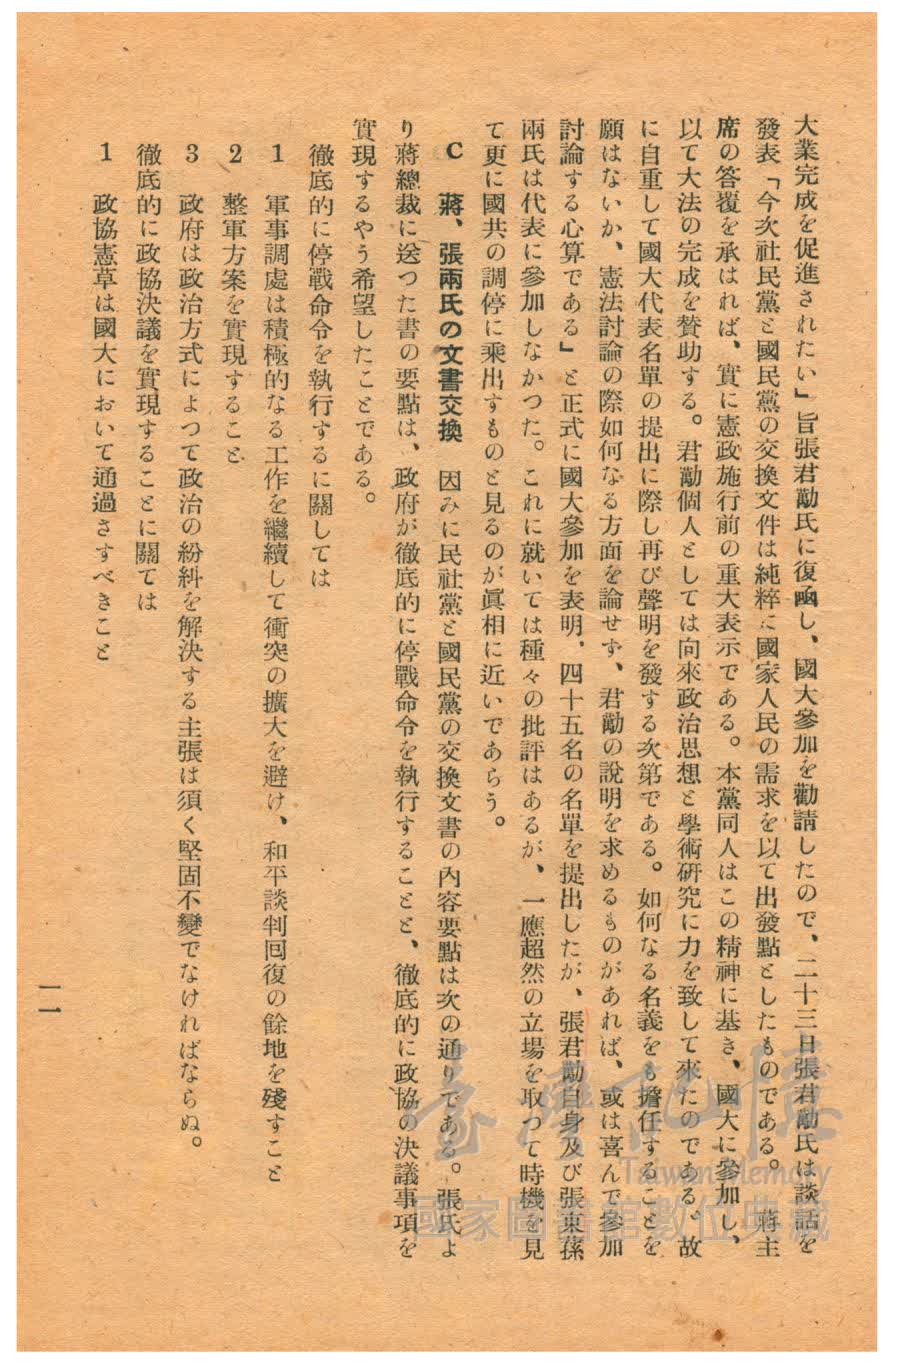 大業完成を促進されたい」旨張君勱氏に復函し、國大參加を勸請したので、二十三日張君勱氏は談話を
發表「今次社民黨と國民黨の交換文件は純粹に國家人民の需求を以て出發點としたものである。蔣主
席の答覆を承はれば、實に憲政施行前の重大表示である。本黨同人はこの精神に基き、國大に參加し、
以て大法の完成を贊助する。君勱個人としては向來政治思想と學術研究に力を致して來たのである。故
に自重して國大代表名單の提出に際し再び聲明を發する次第である。如何なる名義をも擔任することを
願はないか、憲法討論の際如何なる方面を論せず、君勱の說明を求めるものがあれば、或は喜んで參加
討論する心算である」と正式に國大參加を表明、四十五名の名單を提出したが、張君勱自身及び張東蓀
兩氏は代表に參加しなかつた。これに就いては種々の批評はあるが、一應超然の立場を取つて時機を見
て更に國共の調停に乘出すものと見るのが眞相に近いであらう。
C 蔣、張兩氏の文書交換 因みに民社黨と國民黨の交換文書の內容要點は次の通りである。張氏よ
り蔣總裁に送つた書の要點は、政府が徹底的に停戰命令を執行することと、徹底的に政協の決議事項を
實現するやう希望したことである。
徹底的に停戰命令を執行するに關しては
1 軍事調處は積極的なる工作を繼續して衝突の擴大を避け、和平談判囘復の餘地を殘すこと
2 整軍方案を實現すること
3 政府は政治方式によつて政治の紛糾を解決する主張は須く堅固不變でなければならぬ。
徹底的に政協決議を實現することに關ては
1 政協憲草は國大において通過さすべきこと
一一
臺灣記憶
Taiwan Memory
國家圖書館數位典藏